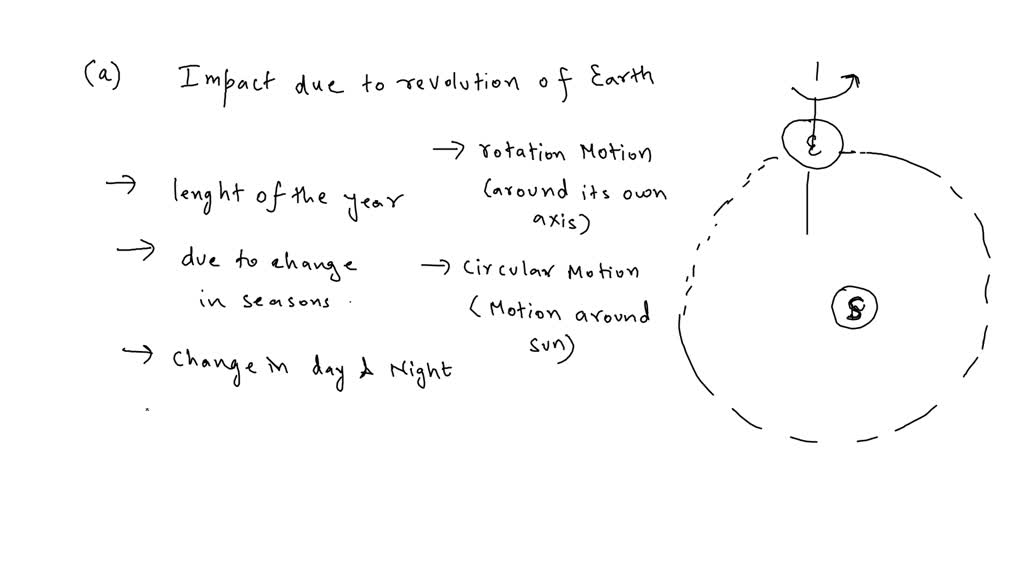 (a) Impact due to revolution of Earth
→ lenght of the year
→ due to change
in seasons.
→ change in day & Night
→ rotation Motion
(around its own
axis)
→ circular Motion
(Motion around
sun)
E
S